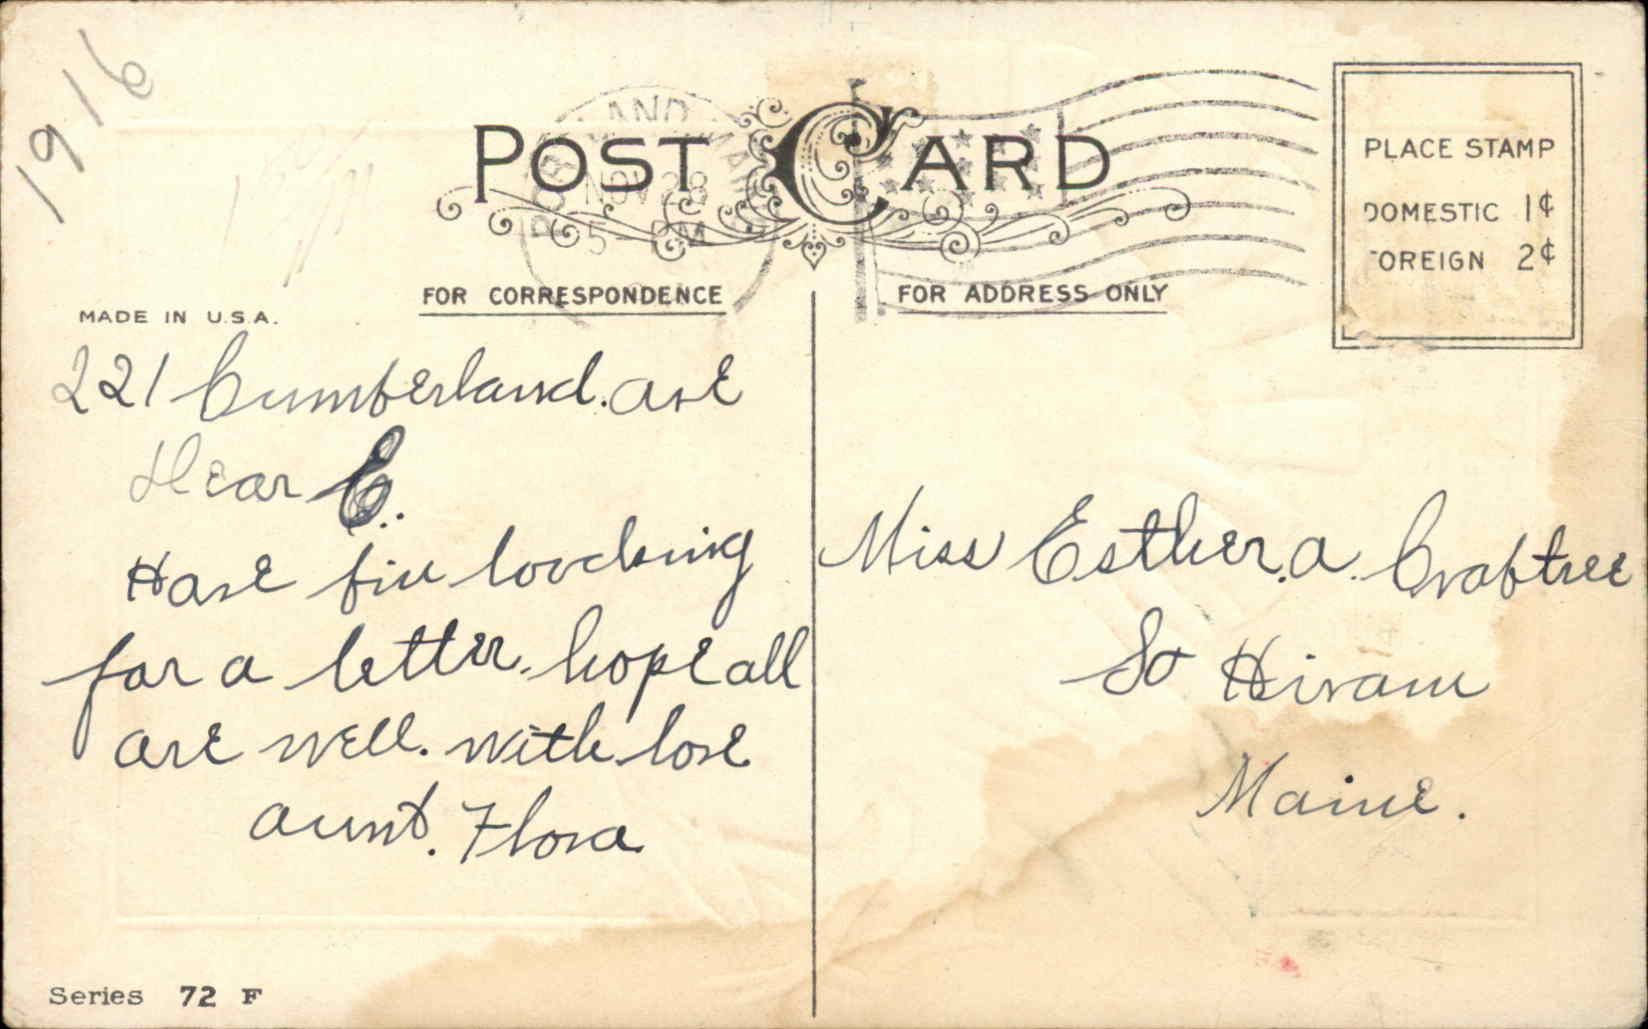 1916
POST CARD
PORTLAND MAINE
NOV 28
5 - PM
PLACE STAMP
DOMESTIC 1¢
FOREIGN 2¢
FOR CORRESPONDENCE
FOR ADDRESS ONLY
MADE IN U.S.A.
221 Cumberland. ave
Dear E..
Have bin loocking
for a letter. hope all
are well. with love
aunt. Flora
Miss Esther. a. Crabtree
So Hiram
Maine.
Series 72 F